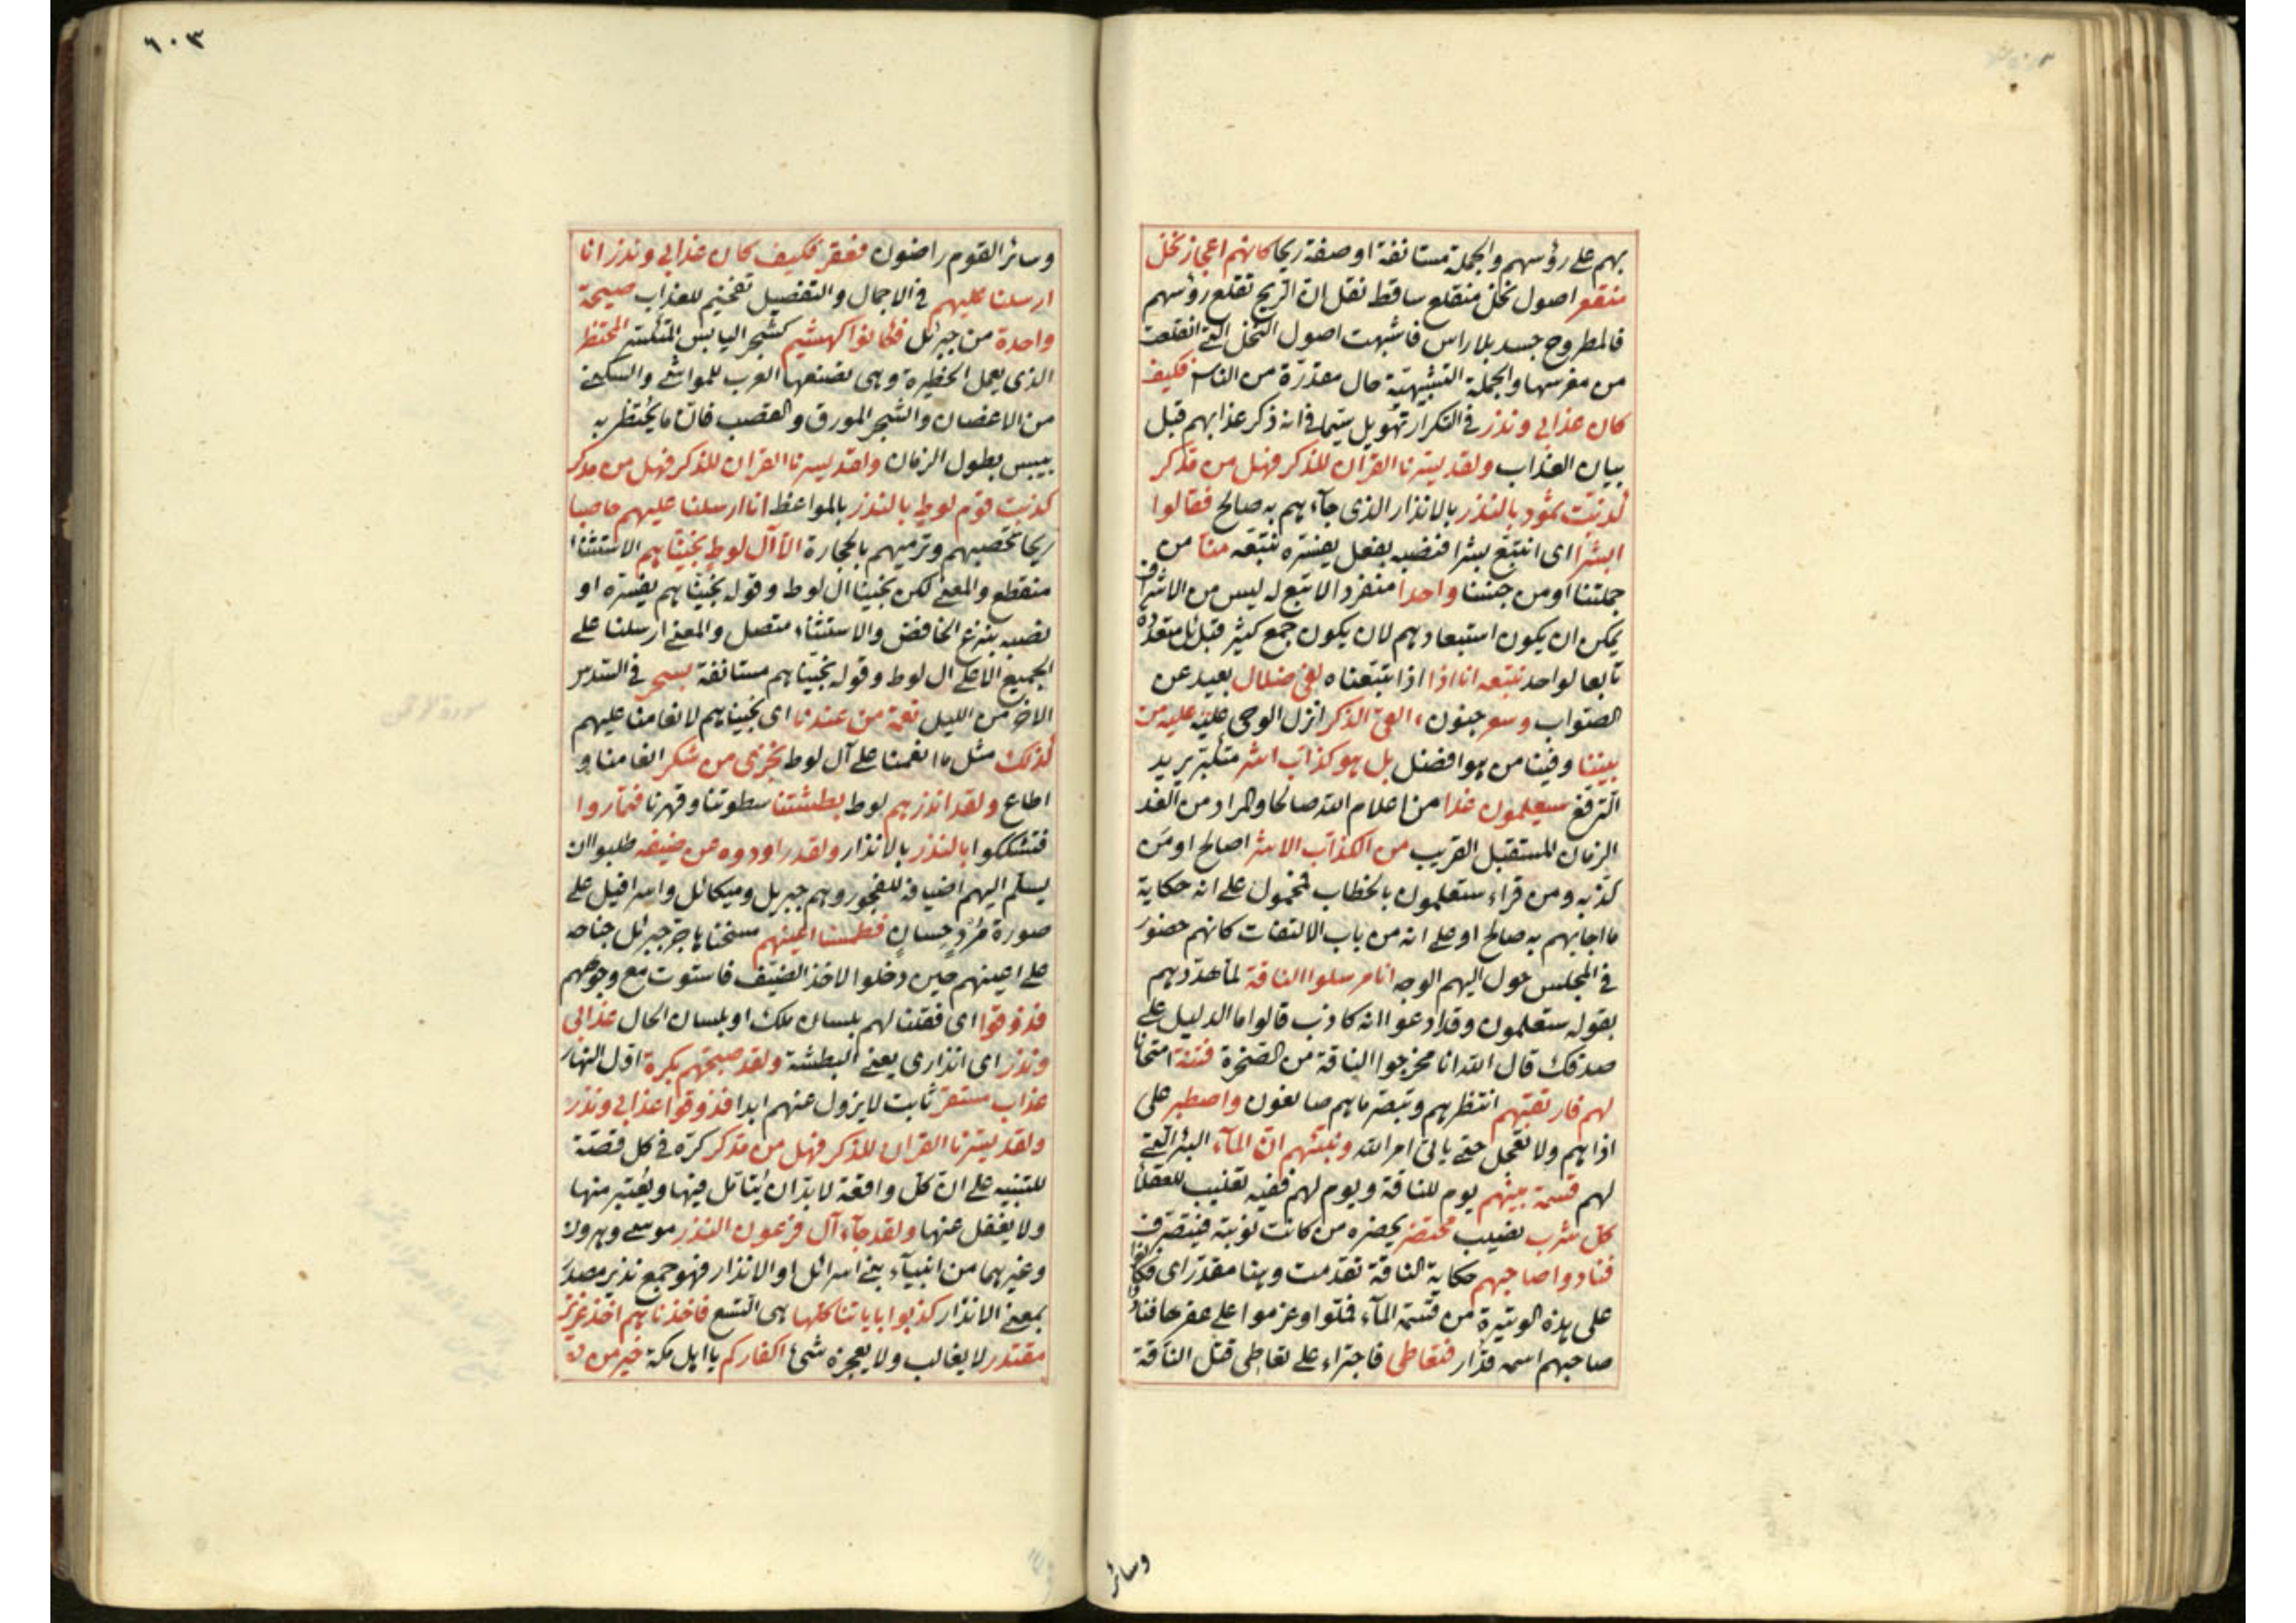 بهم على رؤسهم والجملة مستانفة او صفة ريحا كانهم اعجاز نخل
منقعر اصول نخل منقلع ساقط نقل ان الريح تقلع رؤسهم
فالمطروح جسد بلا راس فاشبهت اصول النخل التى انقلعت
من مغرسها والجملة التشبيهية حال مقدرة من الناس فكيف
كان عذابى ونذر فى التكرار تهويل سيما فى انه ذكر عذابهم قبل
بيان العذاب ولقد يسرنا القران للذكر فهل من مدكر
كذبت ثمود بالنذر بالانذار الذى جآءهم به صالح فقالوا
ابشرا اى انتبع بشرا فنصبه بفعل يفسره نتبعه منا من
جملتنا او من جنسنا واحدا منفردا لا تبع له ليس من الاشراف
يمكن ان يكون استبعادهم لان يكون جمع كثير قبائل متعددة
تابعا لواحد نتبعه انا اذا اذا نتبعناه لفى ضلال بعيد عن
الصواب وسعر جنون ءالقى الذكر انزل الوحى عليه عليه من
بيننا وفينا من هو افضل بل هو كذاب اشر متكبر يريد
الترفع سيعلمون غدا من اعلام الله صالحا والمراد من الغد
الزمان المستقبل القريب من الكذاب الاشر اصالح او من
كذبه ومن قراء ستعلمون بالخطاب فمحمول على انه حكاية
ما اجابهم به صالح او على انه من باب الالتفات كانهم حضور
فى المجلس حول اليهم الوجه انا مرسلوا الناقة لما هددهم
بقوله ستعلمون وقد ادعوا انه كاذب قالوا ما الدليل على
صدقك قال الله انا مخرجوا الناقة من الصخرة فتنة امتحانا
لهم فارتقبهم انتظرهم وتبصر ما هم صانعون واصطبر على
اذاهم ولا تعجل حتى ياتى امر الله ونبئهم ان المآء البئر التى
لهم قسمة بينهم يوم للناقة ويوم لهم ففيه تغليب للعقلا
كل شرب نصيب محتضر يحضره من كانت نوبته فيتصرف
فنادوا صاحبهم حكاية الناقة تقدمت وهنا مقدر اى فكانوا
على هذه الوتيرة من قسمة المآء فملوا وعزموا على عقرها فنادوا
صاحبهم اسمه قدار فتعاطى فاجتراء على تعاطى قتل الناقة
وسائر
٦٠٣
وسائر القوم راضون فعقر فكيف كان عذابى ونذر انا
ارسلنا عليهم فى الاجمال والتفصيل تفخيم للعذاب صيحة
واحدة من جبرئل فكانوا كهشيم كشجر اليابس المتكسر المحتظر
الذى يعمل الحظيرة وهى تصنعها العرب للمواشى والسكنى
من الاغصان والشجر المورق والقصب فان ما يحتظر به
ييبس بطول الزمان ولقد يسرنا القران للذكر فهل من مدكر
كذبت قوم لوط بالنذر بالمواعظ انا ارسلنا عليهم حاصبا
ريحا تحصبهم وترميهم بالحجارة الا آل لوط نجيناهم الاستثنا
منقطع والمعنى لكن نجينا ال لوط وقوله نجيناهم يفسره او
نصبه بنزع الخافض والاستثناء متصل والمعنى ارسلنا على
الجميع الا على ال لوط وقوله نجيناهم مستانفة بسحر فى السدس
الاخر من الليل نعمة من عندنا اى نجيناهم لانعامنا عليهم
كذلك مثل ما انعمنا على آل لوط نجزى من شكر انعامنا و
اطاع ولقد انذرهم لوط بطشتنا سطوتنا وقهرنا فتماروا
فتشككوا بالنذر بالانذار ولقد راودوه عن ضيفه طلبوا ان
يسلم اليهم اضيافه للفجور وهم جبريل وميكائل واسرافيل على
صورة مرد حسان فطمسنا اعينهم مسخناها جر جبرئل جناحه
على اعينهم حين دخلوا لاخذ الضيف فاستوت مع وجوههم
فذوقوا اى فقلنا لهم بلسان ملك او بلسان الحال عذابى
ونذر اى انذارى يعنى البطشة ولقد صبحهم بكرة اول النهار
عذاب مستقر ثابت لا يزول عنهم ابدا فذوقوا عذابى ونذر
ولقد يسرنا القران للذكر فهل من مدكر كرره فى كل قصة
للتنبيه على ان كل واقعة لا بد ان يتامل فيها ويعتبر منها
ولا يغفل عنها ولقد جآء آل فرعون النذر موسى وهرون
وغيرهما من انبيآء بنى اسرائل او الانذار فهو جمع نذير مصدر
بمعنى الانذار كذبوا باياتنا كلها هى التسع فاخذناهم اخذ عزيز
مقتدر لا يغالب ولا يعجزه شئ اكفاركم يا اهل مكة خير من